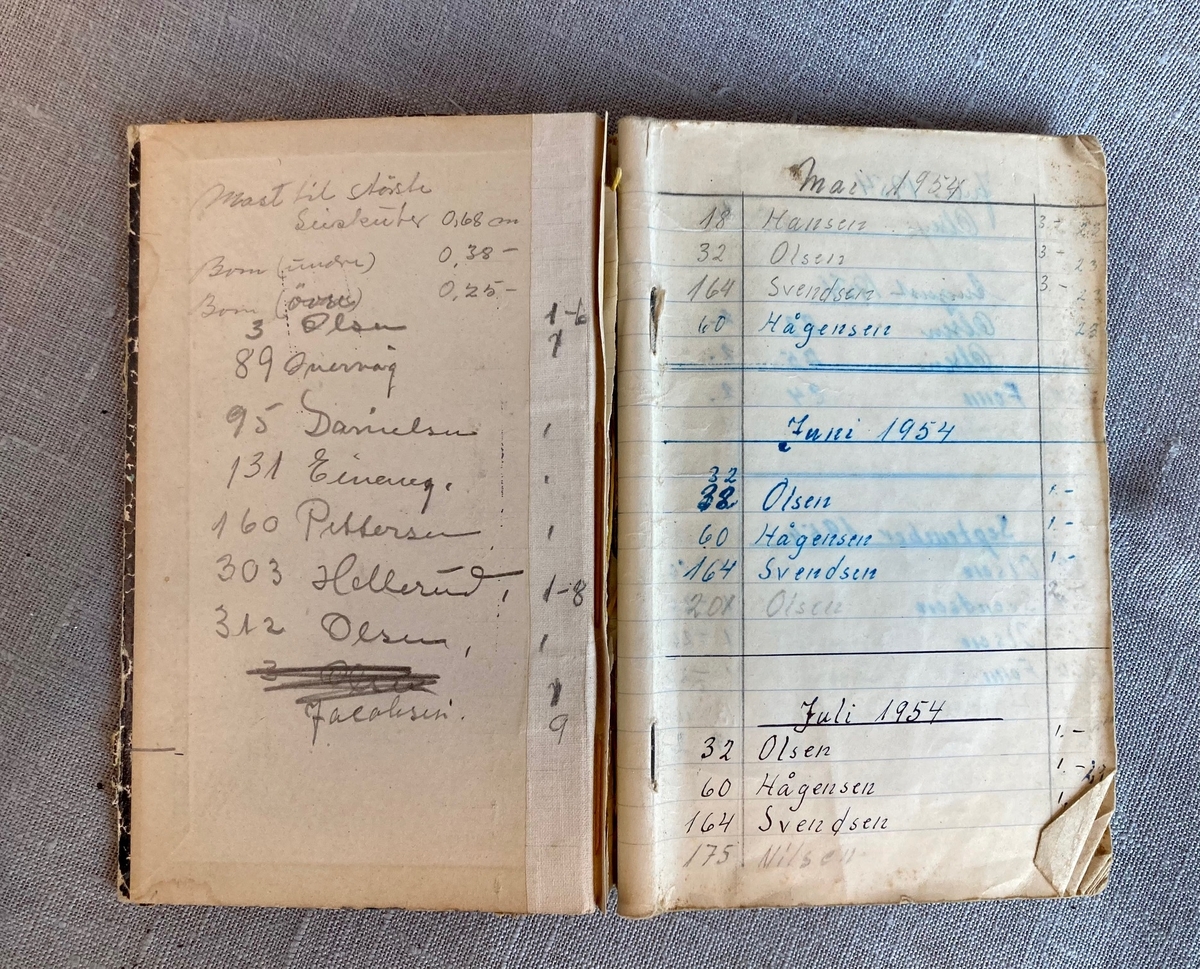 Mast til störste
0,68 m
Bom (undre) 0,38 -
Bom (övre) 0,25 -
3 Olsen 1-6
89 1
95 Danielsen 1
131 1
160 Pettersen 1
303 Hellerud, 1-8
312 Olsen, 1
3 Olsen 1
Jacobsen. 9
Mai 1954
18 Hansen 3.- 23
32 Olsen 3 - 23
164 Svendsen 3.-
60 Hågensen 23
Juni 1954
32
32 Olsen 1.-
60 Hågensen 1.-
164 Svendsen 1.-
201 Olsen 2
Juli 1954
32 Olsen 1.-
60 Hågensen 1.-
164 Svendsen 1.
175. Nilsen